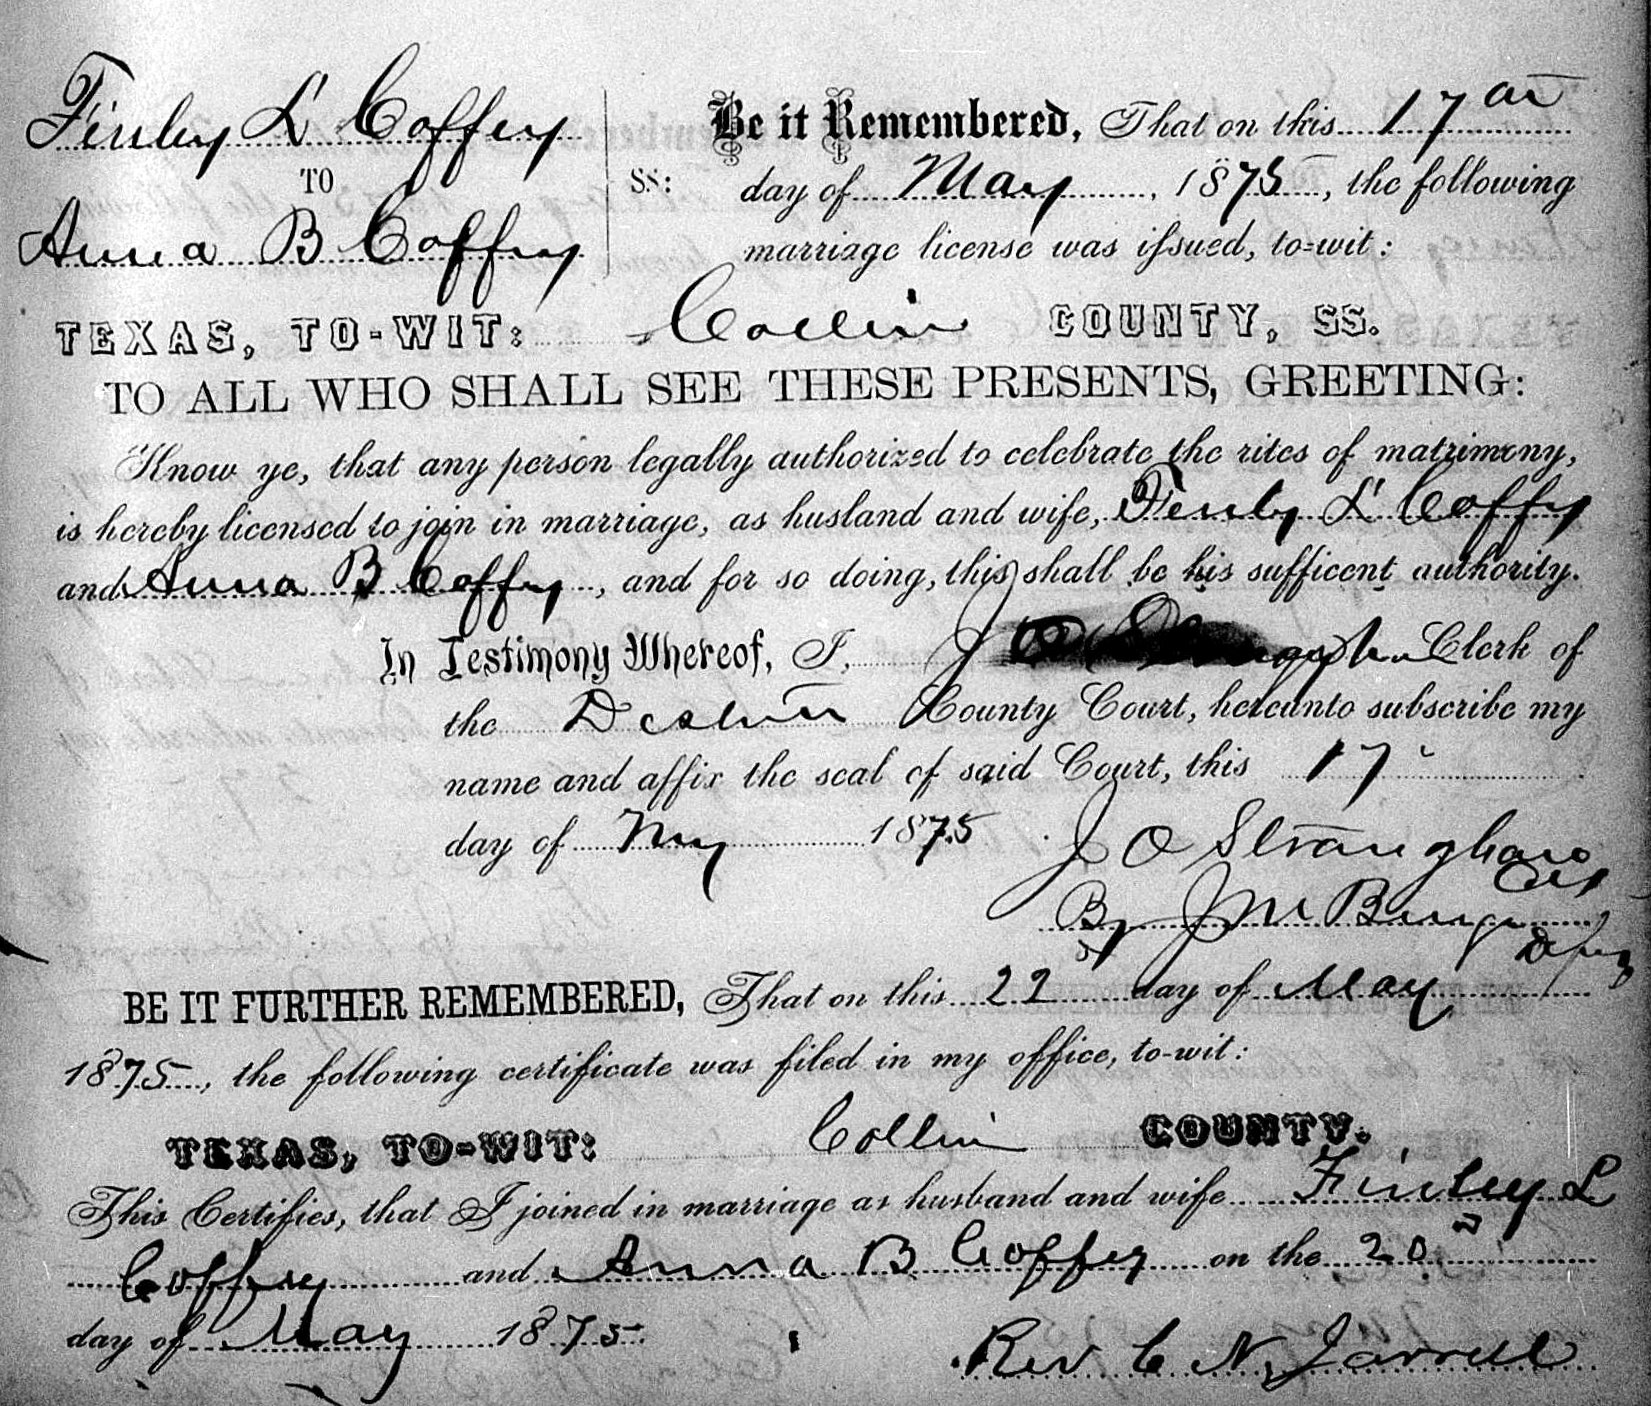 Finley L Coffey
TO
Anna B Coffey
SS:
Be it Remembered, That on this 17
day of May, 1875, the following
marriage license was issued, to-wit:
TEXAS, TO-WIT: Collin COUNTY, SS.
TO ALL WHO SHALL SEE THESE PRESENTS, GREETING:
Know ye, that any person legally authorized to celebrate the rites of matrimony,
is hereby licensed to join in marriage, as husband and wife, Finley L Coffey
and Anna B Coffey, and for so doing, this shall be his sufficent authority.
In Testimony Whereof, I, J O Clerk of
the County Court, hereunto subscribe my
name and affix the seal of said Court, this 17
day of May 1875
J O Straughan
Clk
By J M
BE IT FURTHER REMEMBERED, That on this 22 day of May
1875, the following certificate was filed in my office, to-wit:
TEXAS, TO-WIT: Collin COUNTY.
This Certifies, that I joined in marriage as husband and wife Finley L
Coffey and Anna B Coffey on the 20
day of May 1875
Rev C N Jarrell